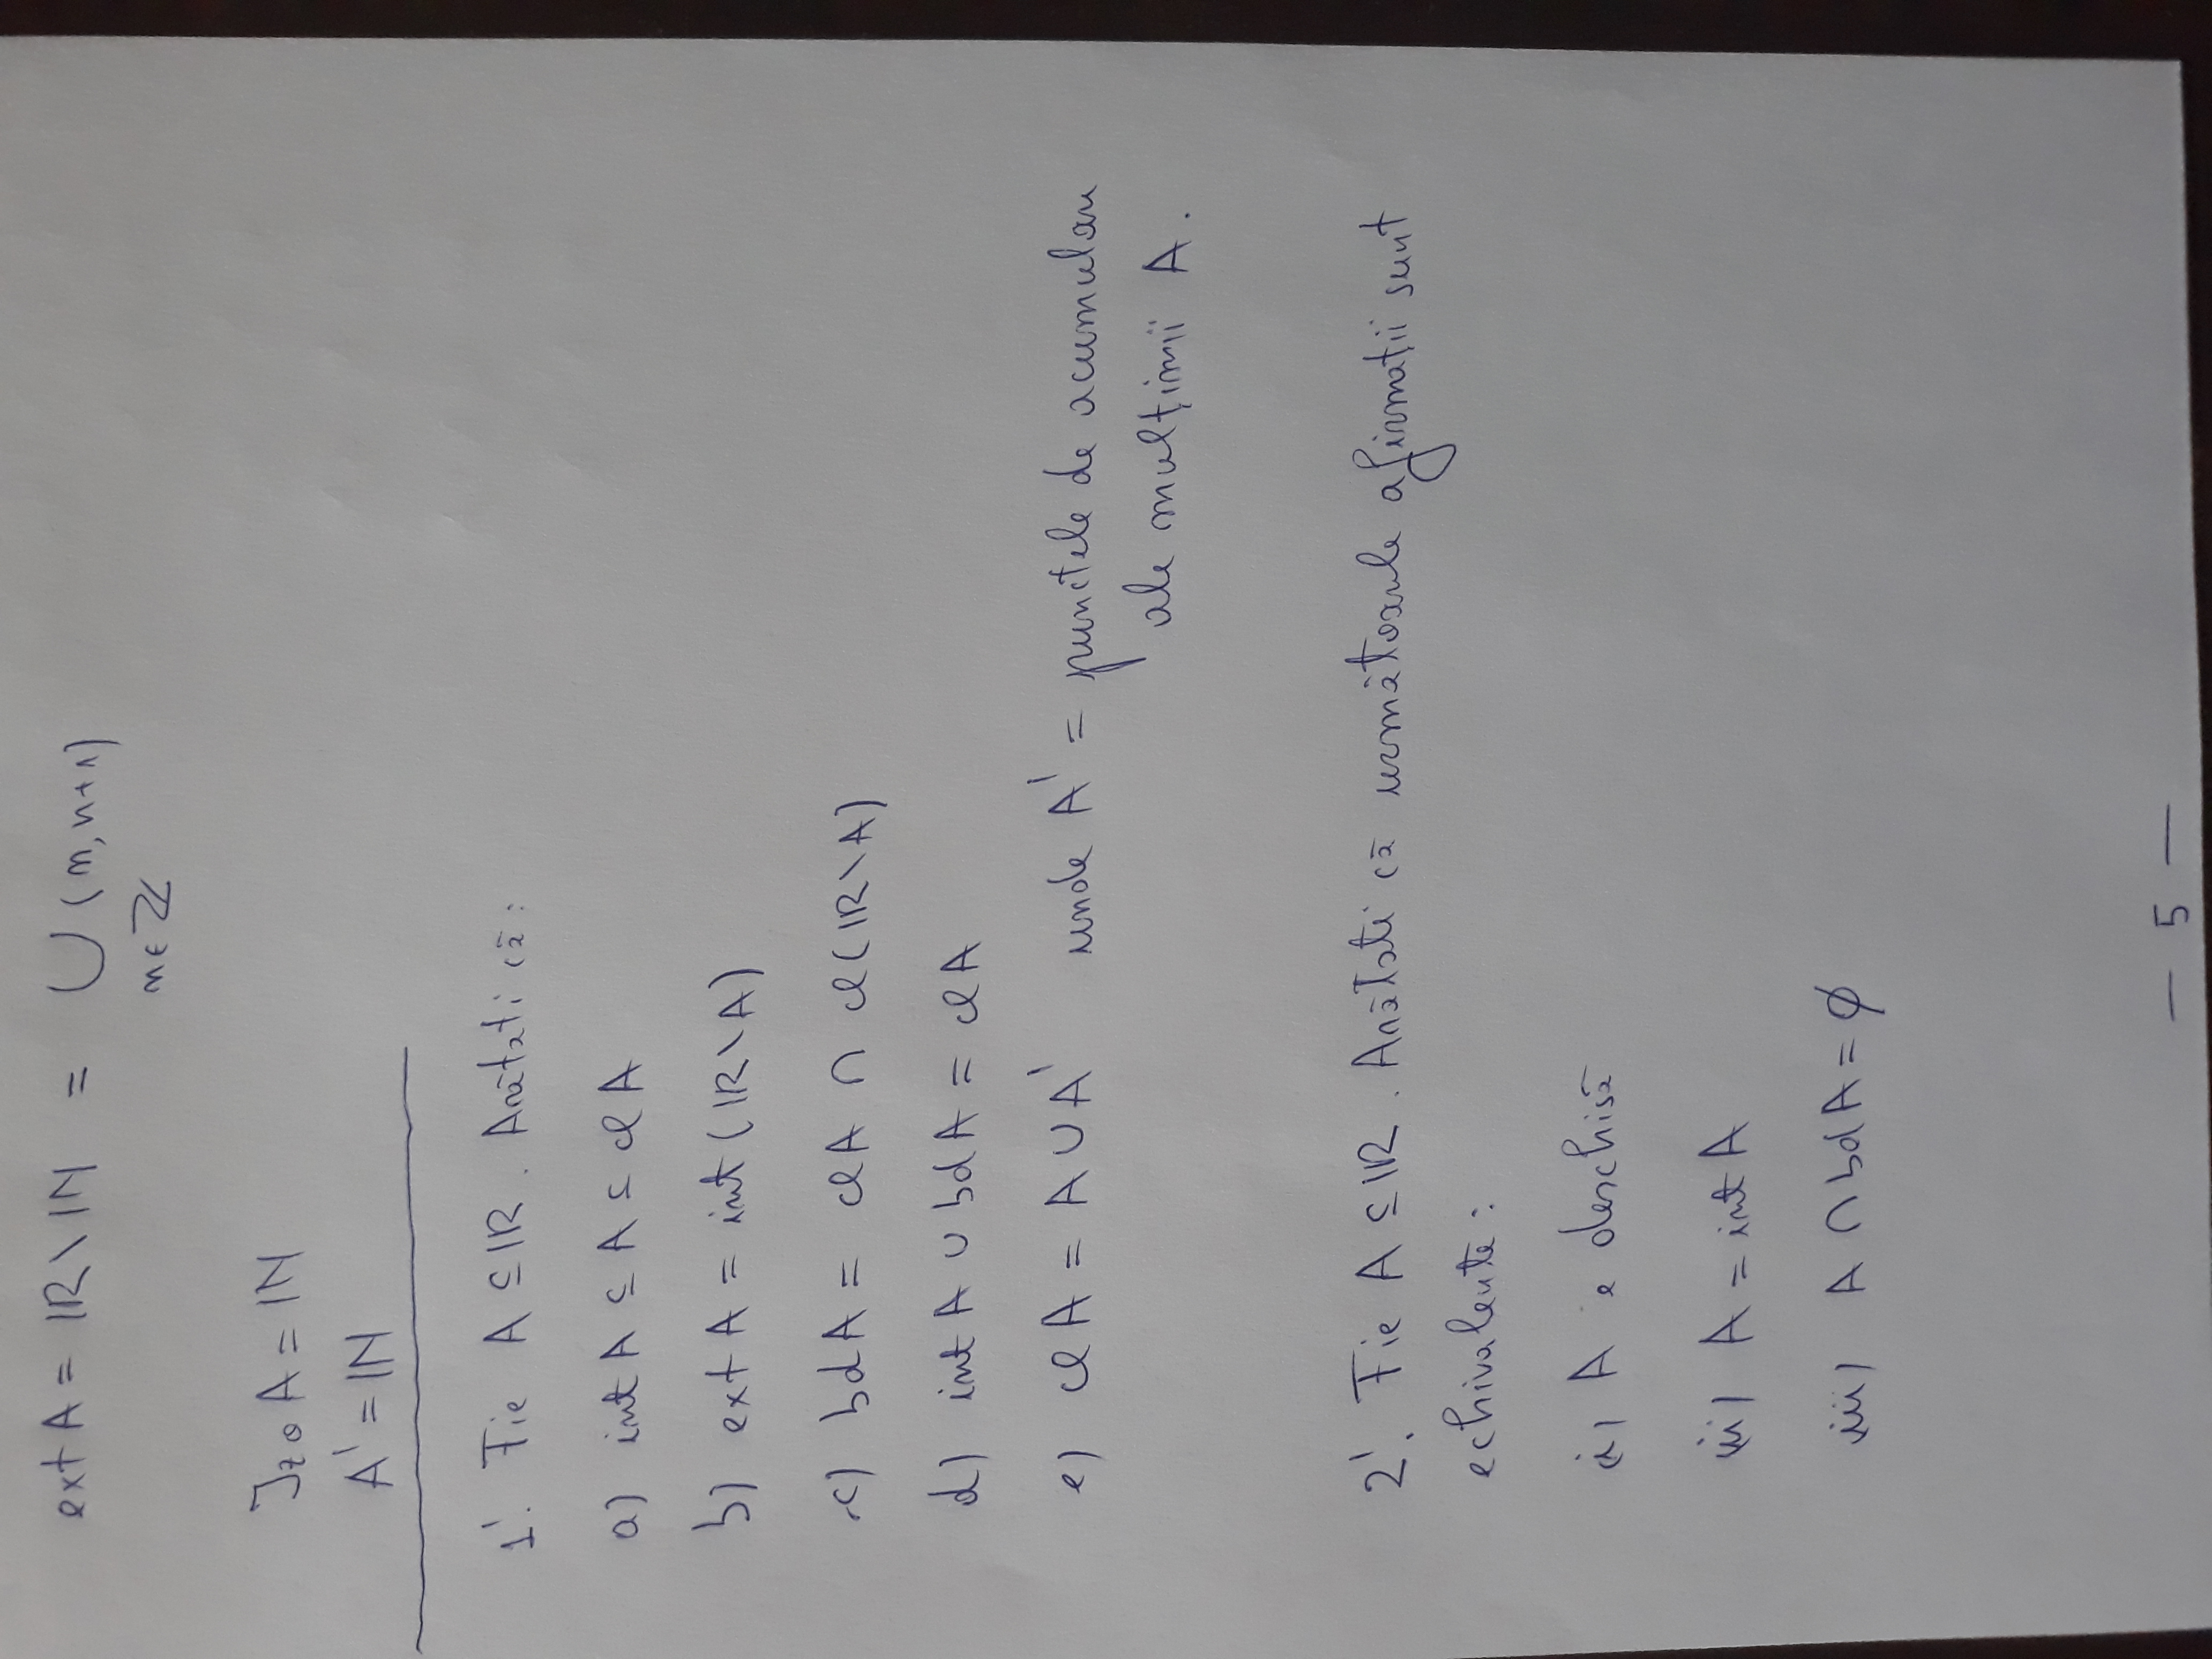 ext A = ℝ\ℕ = ⋃ (n, n+1)
n∈ℤ
Izo A = ℕ
A' = ℕ
1'. Fie A ⊆ ℝ. Arătati că:
a) int A ⊆ A ⊆ cl A
b) ext A = int (ℝ\A)
c) bd A = cl A ∩ cl (ℝ\A)
d) int A ∪ bd A = cl A
e) cl A = A ∪ A' unde A' = punctele de acumulare
ale mulțimii A.
2'. Fie A ⊆ ℝ. Arătati că următoarele afirmații sunt
echivalente:
i) A e deschisă
ii) A = int A
iii) A ∩ bd A = ∅
— 5 —